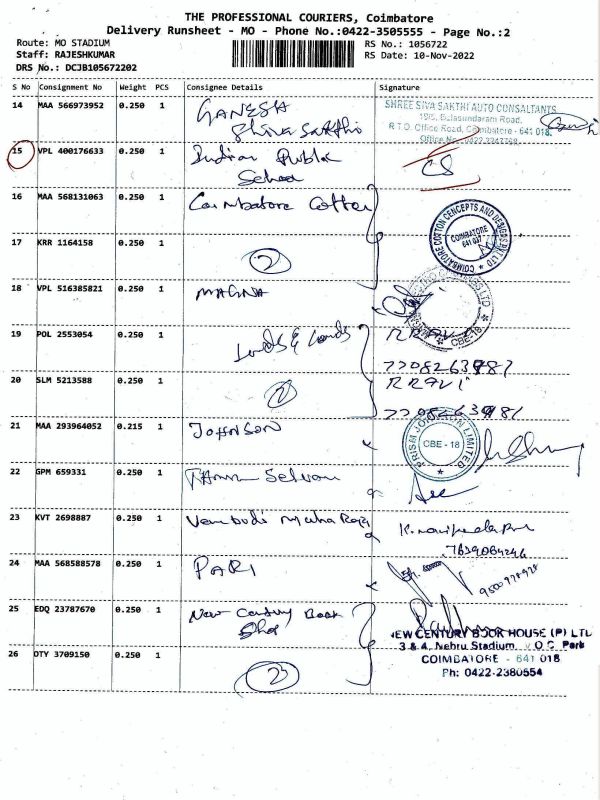 THE PROFESSIONAL COURIERS, Coimbatore
Delivery Runsheet - MO - Phone No.:0422-3505555 - Page No.:2
Route: MO STADIUM
Staff: RAJESHKUMAR
DRS No.: DCJB105672202
RS No.: 1056722
RS Date: 10-Nov-2022
S No Consignment No Weight PCS Consignee Details Signature
14 MAA 566973952 0.250 1 GANESH
Shiva Sakthi
SHREE SIVA SAKTHI AUTO CONSALTANTS
Balasundaram Road,
R.T.O. Office Road, Coimbatore - 641 018.
15 VPL 400176633 0.250 1 Indian Public
School
16 MAA 568131063 0.250 1 Coimbatore Cotton
COIMBATORE COTTON CENCEPTS AND DESIGNS PV LTD
COIMBATORE
641 037
17 KRR 1164158 0.250 1
2
18 VPL 516385821 0.250 1 MAGNA
CBE-18
19 POL 2553054 0.250 1 Lords & Lords
R RAVI
20 SLM 5213588 0.250 1
2
R RAVI
21 MAA 293964052 0.215 1 JOHNSON
PRISM JOHNSON LIMITED
CBE - 18
22 GPM 659331 0.250 1 Selvan
23 KVT 2698887 0.250 1
24 MAA 568588578 0.250 1 PARI
25 EDQ 23787670 0.250 1 New Century Book
NEW CENTURY BOOK HOUSE (P) LTD
3 & 4, Nehru Stadium, V.O.C. Park
COIMBATORE - 641 018
Ph: 0422-2380554
26 DTY 3709150 0.250 1
2